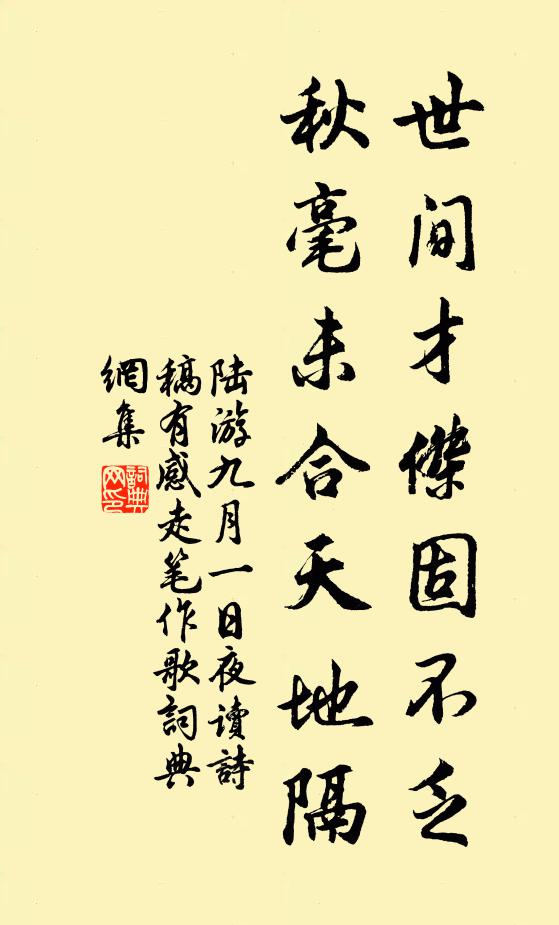 世間才傑固不乏
秋毫未合天地隔
陆游九月一日夜讀詩
稿有感走笔作歌詞典
網集
詞典
网印